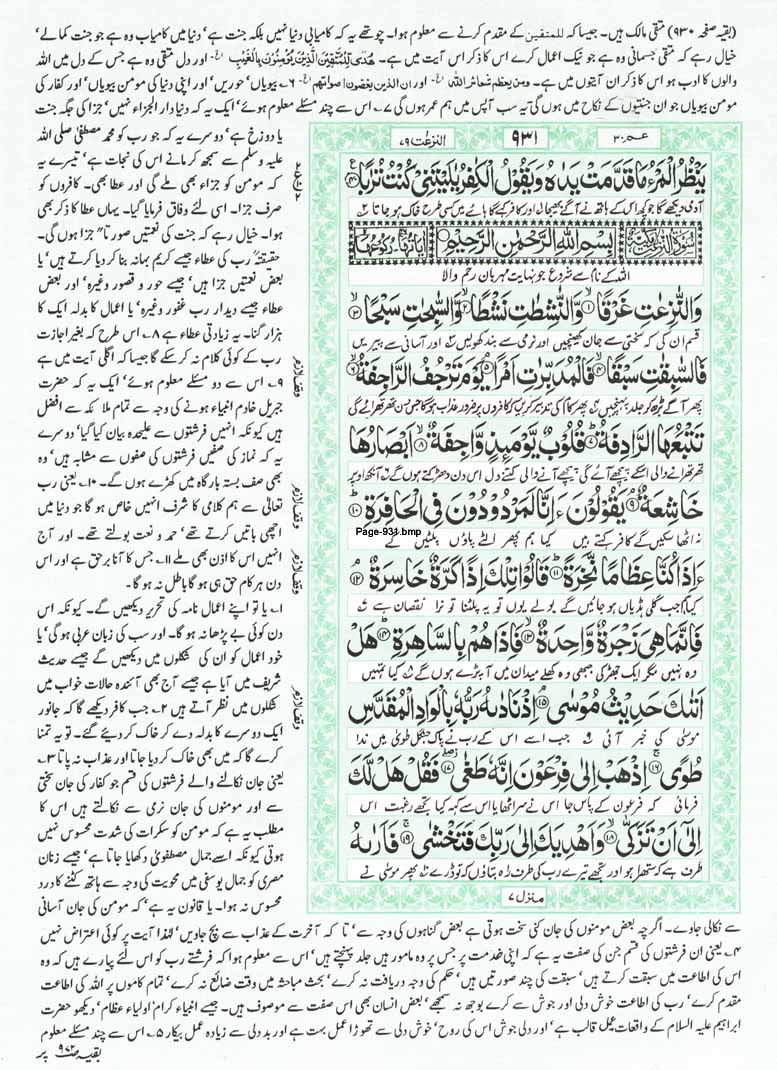 (بقیہ صفحہ ۹۳۰) متقی مالک ہیں۔ جیسا کہ للمتقین کے مقدم کرنے سے معلوم ہوا۔ چوتھے یہ کہ کامیابی دنیا نہیں بلکہ جنت ہے' دنیا میں کامیاب وہ ہے جو جنت کمالے'
خیال رہے کہ متقی جسمانی وہ ہے جو نیک اعمال کرے اس کا ذکر اس آیت میں ہے۔ هُدًى لِّلْمُتَّقِيْنَ الَّذِيْنَ يُؤْمِنُوْنَ بِالْغَيْبِ اور دل متقی وہ ہے جس کے دل میں اللہ
والوں کا ادب ہو اس کا ذکر ان آیتوں میں ہے۔ ومن یعظم شعائر اللہ اور ان الذین یغضون اصواتھم ۶۔ بیویاں' حوریں' اور اپنی دنیا کی مومن بیویاں' اور کفار کی
مومن بیویاں جو ان جنتیوں کے نکاح میں ہوں گی یہ سب آپس میں ہم عمر ہوں گی ۷۔ اس سے چند مسئلے معلوم ہوئے' ایک یہ کہ دنیا دار الجزاء نہیں' جزا کی جگہ جنت
یا دوزخ ہے' دوسرے یہ کہ جو رب کو محمد مصطفیٰ صلی اللہ
علیہ وسلم سے سمجھ کر مانے اس کی نجات ہے' تیسرے یہ
کہ مومن کو جزاء بھی ملے گی اور عطا بھی۔ کافروں کو
صرف جزا۔ اسی لئے وفاق فرمایا گیا۔ یہاں عطا کا ذکر بھی
ہوا۔ خیال رہے کہ جنت کی نعمتیں صورتاً جزا ہوں گی۔
حقیقتہً رب کی عطاء جیسے کریم بہانہ بنا کر دیا کرتے ہیں' یا
بعض نعمتیں جزا ہیں' جیسے حور و قصور وغیرہ' اور بعض
عطاء جیسے دیدار رب غفور وغیرہ' یا اعمال کا بدلہ ایک کا
ہزار گنا۔ یہ زیادتی عطاء ہے ۸۔ اس طرح کہ بغیر اجازت
رب کے کوئی کلام نہ کر سکے گا جیسا کہ اگلی آیت میں ہے
۹۔ اس سے دو مسئلے معلوم ہوئے' ایک یہ کہ حضرت
جبریل خادم انبیاء ہونے کی وجہ سے تمام ملائکہ سے افضل
ہیں کیونکہ انہیں فرشتوں سے علیحدہ بیان کیا گیا' دوسرے
یہ کہ نماز کی صفیں فرشتوں کی صفوں سے مشابہ ہیں' وہ
بھی صف بستہ بارگاہ میں کھڑے ہوں گے۔ ۱۰۔ یعنی رب
تعالیٰ سے ہم کلامی کا شرف انہیں خاص ہو گا جو دنیا میں
اچھی باتیں کرتے تھے' حمد و نعت بولتے تھے۔ اور آج
انہیں اس کا اذن بھی ملے ۱۱۔ جس کا آنا برحق ہے اور اس
دن ہر کام حق ہی ہو گا باطل نہ ہو گا۔
۱۔ یا تو اپنے اعمال نامہ کی تحریر دیکھیں گے۔ کیونکہ اس
دن کوئی بے پڑھا نہ ہو گا۔ اور سب کی زبان عربی ہو گی' یا
خود اعمال کو ان کی شکلوں میں دیکھیں گے جیسے حدیث
شریف میں آیا ہے جیسے آج بھی آئندہ حالات خواب میں
شکلوں میں نظر آتے ہیں ۲۔ جب کافر دیکھے گا کہ جانور
ایک دوسرے کا بدلہ دے کر خاک کر دیئے گئے۔ تو یہ تمنا
کرے گا کہ میں بھی خاک کر دیا جاتا اور عذاب نہ پاتا ۳۔
یعنی جان نکالنے والے فرشتوں کی قسم جو کفار کی جان سختی
سے اور مومنوں کی جان نرمی سے نکالتے ہیں اس کا
مطلب یہ ہے کہ مومن کو سکرات کی شدت محسوس نہیں
ہوتی کیونکہ اسے جمال مصطفوی دکھایا جاتا ہے' جیسے زنان
مصری کو جمال یوسفی میں محویت کی وجہ سے ہاتھ کٹنے کا درد
محسوس نہ ہوا۔ یا قانون یہ ہے' کہ مومن کی جان آسانی
وقف لازم
وقف لازم
وقف لازم
وقف لازم
عم ۳۰
۹۳۱
النزعٰت ۷۹
يَنْظُرُ الْمَرْءُ مَا قَدَّمَتْ يَدٰهُ وَيَقُوْلُ الْكٰفِرُ يٰلَيْتَنِيْ كُنْتُ تُرٰبًا ﴿۴۰﴾
آدمی دیکھے گا جو کچھ اس کے ہاتھ نے آگے بھیجا اور کافر کہے گا ہائے میں کسی طرح خاک ہو جاتا ۲
بِسْمِ اللّٰهِ الرَّحْمٰنِ الرَّحِيْمِ
اللہ کے نام سے شروع جو نہایت مہربان رحم والا
وَالنّٰزِعٰتِ غَرْقًا ﴿۱﴾ وَّالنّٰشِطٰتِ نَشْطًا ﴿۲﴾ وَّالسّٰبِحٰتِ سَبْحًا ﴿۳﴾
قسم ان کی کہ سختی سے جان کھینچیں اور نرمی سے بند کھولیں اور آسانی سے پیریں
فَالسّٰبِقٰتِ سَبْقًا ﴿۴﴾ فَالْمُدَبِّرٰتِ اَمْرًا ﴿۵﴾ يَوْمَ تَرْجُفُ الرَّاجِفَةُ ﴿۶﴾
پھر آگے بڑھ کر جلد پہنچیں پھر کام کی تدبیر کریں کہ کافروں پر ضرور عذاب ہو گا جس دن تھرتھرائے گی
تَتْبَعُهَا الرَّادِفَةُ ﴿۷﴾ قُلُوْبٌ يَّوْمَئِذٍ وَّاجِفَةٌ ﴿۸﴾ اَبْصَارُهَا
تھرتھرانے والی اسکے پیچھے آئے گی پیچھے آنے والی کتنے دل اس دن دھڑکتے ہوں گے آنکھ اوپر
خَاشِعَةٌ ﴿۹﴾ يَقُوْلُوْنَ ءَاِنَّا لَمَرْدُوْدُوْنَ فِي الْحَافِرَةِ ﴿۱۰﴾
نہ اٹھا سکیں گے کافر کہتے ہیں کیا ہم پھر الٹے پاؤں پلٹیں گے
Page-931.bmp
ءَاِذَا كُنَّا عِظَامًا نَّخِرَةً ﴿۱۱﴾ قَالُوْا تِلْكَ اِذًا كَرَّةٌ خَاسِرَةٌ ﴿۱۲﴾
کیا ہم جب گلی ہڈیاں ہو جائیں گے بولے یوں تو یہ پلٹنا تو نرا نقصان ہے
فَاِنَّمَا هِيَ زَجْرَةٌ وَّاحِدَةٌ ﴿۱۳﴾ فَاِذَا هُمْ بِالسَّاهِرَةِ ﴿۱۴﴾ هَلْ
وہ نہیں مگر ایک جھڑکی جبھی وہ کھلے میدان میں آ پڑے ہوں گے کیا تمہیں
اَتٰىكَ حَدِيْثُ مُوْسٰى ﴿۱۵﴾ اِذْ نَادٰىهُ رَبُّهٗ بِالْوَادِ الْمُقَدَّسِ
موسیٰ کی خبر آئی جب اسے اس کے رب نے پاک جنگل طویٰ میں ندا
طُوًى ﴿۱۶﴾ اِذْهَبْ اِلٰى فِرْعَوْنَ اِنَّهٗ طَغٰى ﴿۱۷﴾ فَقُلْ هَلْ لَّكَ
فرمائی کہ فرعون کے پاس جا اس نے سر اٹھایا اس سے کہہ کیا تجھے رغبت اس
اِلٰى اَنْ تَزَكّٰى ﴿۱۸﴾ وَاَهْدِيَكَ اِلٰى رَبِّكَ فَتَخْشٰى ﴿۱۹﴾ فَاَرٰىهُ
طرف ہے کہ ستھرا ہو اور تجھے تیرے رب کی طرف راہ بتاؤں کہ تو ڈرے پھر موسیٰ نے
منزل ۷
سے نکالی جاوے۔ اگرچہ بعض مومنوں کی جان کنی سخت ہوتی ہے بعض گناہوں کی وجہ سے' تاکہ آخرت کے عذاب سے بچ جاویں' لہذا آیت پر کوئی اعتراض نہیں
۴۔ یعنی ان فرشتوں کی قسم جن کی صفت یہ ہے کہ اپنی خدمت پر جس پر وہ مامور ہیں جلد پہنچتے ہیں' اس سے معلوم ہوا کہ فرشتے رب کو اس لئے پیارے ہیں کہ وہ
اس کی اطاعت میں سبقت کرتے ہیں' سبقت کی چند صورتیں ہیں' حکم کی وجہ دریافت نہ کرے' بحث مباحثہ میں وقت ضائع نہ کرے' تمام کاموں پر اللہ کی اطاعت
مقدم کرے' رب کی اطاعت خوش دلی اور جوش سے کرے بوجھ نہ سمجھے' بعض انسان بھی اس صفت سے موصوف ہیں۔ جیسے انبیاء کرام' اولیاء عظام' دیکھو حضرت
ابراہیم علیہ السلام کے واقعات عمل قالب ہے' اور دلی جوش اس کی روح' خوش دلی سے تھوڑا عمل بہت ہے اور بد دلی سے زیادہ عمل بیکار ۵۔ اس سے چند مسئلے معلوم
بقیہ صفحہ ۹۷۲ پر